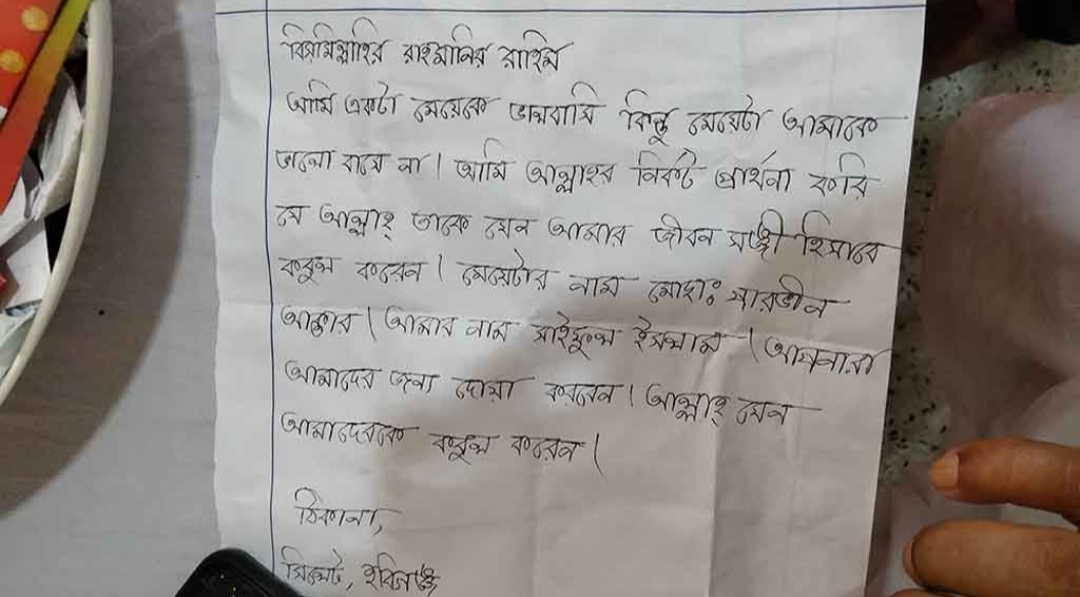 বিসমিল্লাহির রাহমানির রাহিম
আমি একটা মেয়েকে ভালবাসি কিন্তু মেয়েটা আমাকে
ভালো বাসে না। আমি আল্লাহর নিকট প্রার্থনা করি
যে আল্লাহ্ তাকে যেন আমার জীবন সঙ্গী হিসাবে
কবুল করেন। মেয়েটার নাম মোছাঃ শারভীন
আক্তার। আমার নাম সাইফুল ইসলাম। আপনারা
আমাদের জন্য দোয়া করবেন। আল্লাহ্ যেন
আমাদেরকে কবুল করেন।
ঠিকানা,
সিলেট, হবিগঞ্জ